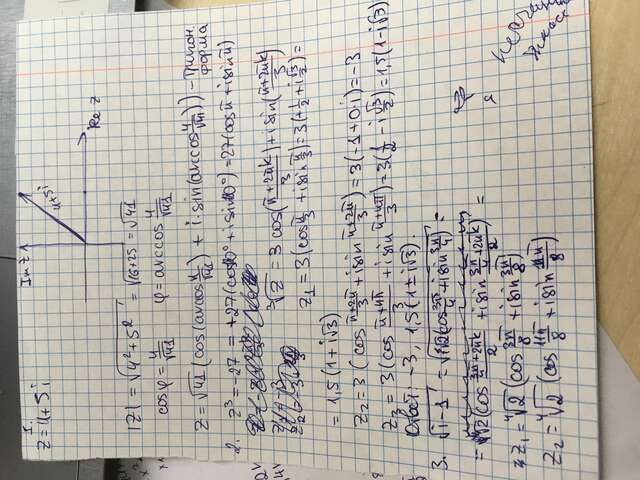 1.
z = 4+5i
Im z
4+5i
Re z
|z| = √(4²+5²) = √(16+25) = √41
cos φ = 4/√41   φ = arccos 4/√41
z = √41 (cos(arccos 4/√41) + i·sin(arccos 4/√41)) – тригон. форма
2. z³ = -27 = +27(cos 180° + i sin 180°) = 27(cos π + i sin π)
³√z = 3 cos(π+2πk/3) + i sin(π+2πk/3)
z₁ = 3(cos π/3 + i sin π/3) = 3(+1/2 + i√3/2) =
= 1,5(1+i√3)
z₂ = 3(cos π+2π/3 + i sin π+2π/3) = 3(-1+0·i) = -3
z₃ = 3(cos π+4π/3 + i sin π+4π/3) = 3(1/2 - i√3/2) = 1,5(1-i√3)
Ответ: -3, 1,5(1±i√3).
3. √(i-1) = √(√2(cos 3π/4 + i sin 3π/4)) =
= ⁴√2(cos (3π/4+2πk)/2 + i sin (3π/4+2πk)/2) =
z₁ = ⁴√2 (cos 3π/8 + i sin 3π/8)
z₂ = ⁴√2 (cos 11π/8 + i sin 11π/8)
я